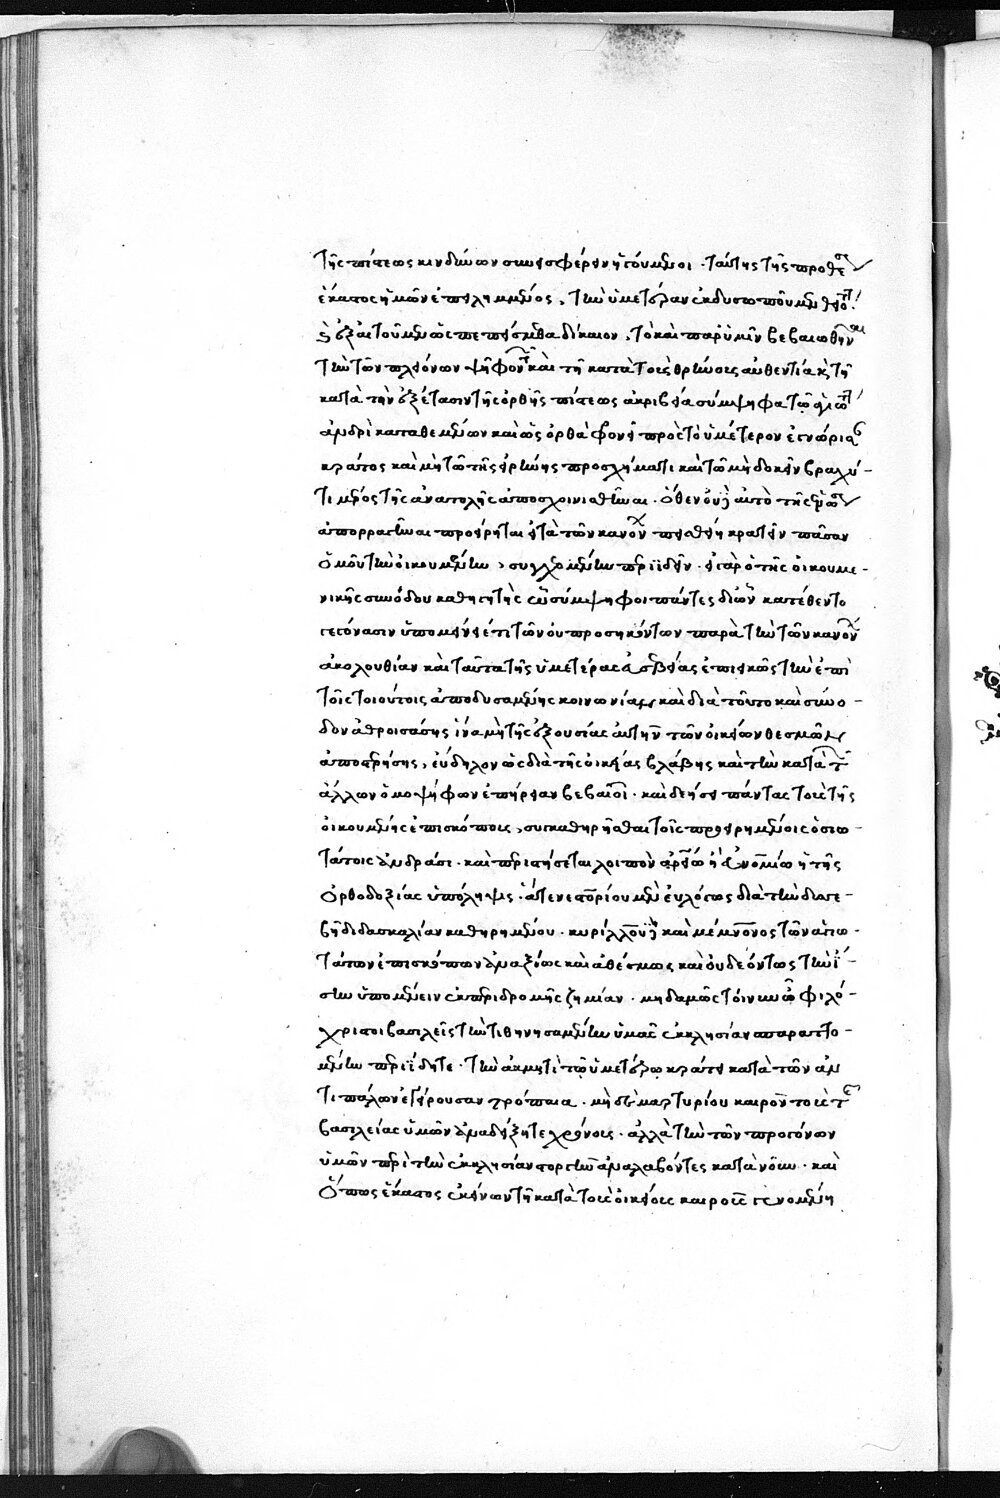 τῆς πίστεως κινδύνων συνεισφέρειν ἡγούμενοι. ταύτης τῆς προθέσεως
ἕκαστος ἡμῶν ἐμπεπλησμένος, τὴν ὑμετέραν ἐκδυσωποῦμεν
ἐξαιτούμενος πεπείσμεθα δίκαιον, τὸ καὶ παρ' ὑμῖν βεβαιωθῆναι
τὴν τῶν πλειόνων ψῆφον καὶ τῇ κατὰ τοὺς θρόνους αὐθεντίᾳ καὶ τῇ
κατὰ τὴν ἐξέτασιν τῆς ὀρθῆς πίστεως ἀκριβείᾳ σύμψηφα τῷ
ἀνδρὶ καταθεμένων καὶ ὡς ὀρθὰ φρονεῖ πρὸς τὸ ὑμέτερον ἐγνώρισε
κράτος καὶ μὴ τῷ τῆς εἰρήνης προσχήματι καὶ τῷ μὴ δοκεῖν βραχύ-
τι μέρος τῆς ἀνατολῆς ἀποσχοινισθῆναι. ὅθεν αὐτὸ τῆς
ἀπορραγῆναι προείρηται εἰ τὰ τῶν κανόνων πεισθείη κρατεῖν πᾶσαν
ὁμοῦ τὴν οἰκουμένην, συγχεομένην περιϊδεῖν. εἰ γὰρ ὁ τῆς οἰκουμε-
νικῆς συνόδου καθηγητὴς ᾧ σύμψηφοι πάντες δι' ὧν κατέθεντο
γεγόνασιν ὑπομείνειέ τι τῶν οὐ προσηκόντων παρὰ τὴν τῶν κανόνων
ἀκολουθίαν καὶ ταῦτα τῆς ὑμετέρας εὐσεβείας ἐπιεικῶς τὴν ἐπὶ
τοῖς τοιούτοις ἀποδυσαμένης κοινωνίαν καὶ διὰ τοῦτο καὶ σύνο-
δον ἀθροισάσης ἵνα μὴ τῆς ἐξουσίας αὐτὴν τῶν οἰκείων θεσμῶν
ἀποστερήσῃς, εὔδηλον ὡς διὰ τῆς οἰκείας βλάβης καὶ τὴν κατὰ τῶν
ἄλλων ὁμοψήφων ἐπήρειαν βεβαιοῖ. καὶ δεήσει πάντας τοὺς τῆς
οἰκουμένης ἐπισκόπους, συγκαθῃρῆσθαι τοῖς προειρημένοις ὁσιω-
τάτοις ἀνδράσι. καὶ περιστήσεται λοιπὸν ἀρείῳ ἢ εὐνομίῳ ἡ τῆς
ὀρθοδοξίας ὑπόληψις. ἅτε νεστορίου μὲν εὐλόγως διὰ τὴν δυσσε-
βῆ διδασκαλίαν καθῃρημένου. κυρίλλου δὲ καὶ μέμνονος τῶν ἁγιω-
τάτων ἐπισκόπων ἀναξίως καὶ ἀθέσμως καὶ οὐ δεόντως τὴν ἴ-
σην ὑπομένειν ἐκ περιδρομῆς ζημίαν. μηδαμῶς τοίνυν ὦ φιλό-
χριστοι βασιλεῖς τὴν τιθηνησαμένην ὑμᾶς ἐκκλησίαν σπαραττο-
μένην περιΐδητε. τὴν ἀκμητὶ τῷ ὑμετέρῳ κράτει κατὰ τῶν ἀν
τιπάλων ἐγείρουσαν τρόπαια. μὴ δὲ μαρτυρίου καιρὸν τοὺς τῆς
βασιλείας ὑμῶν ἀναδείξητε χρόνους. ἀλλὰ τὴν τῶν προγόνων
ὑμῶν περὶ τὴν ἐκκλησίαν στοργὴν ἀναλαβόντες κατὰ νοῦν. καὶ
ὅπως ἕκαστος ἐκείνων τῇ κατὰ τοὺς οἰκείους καιροὺς γενομένῃ